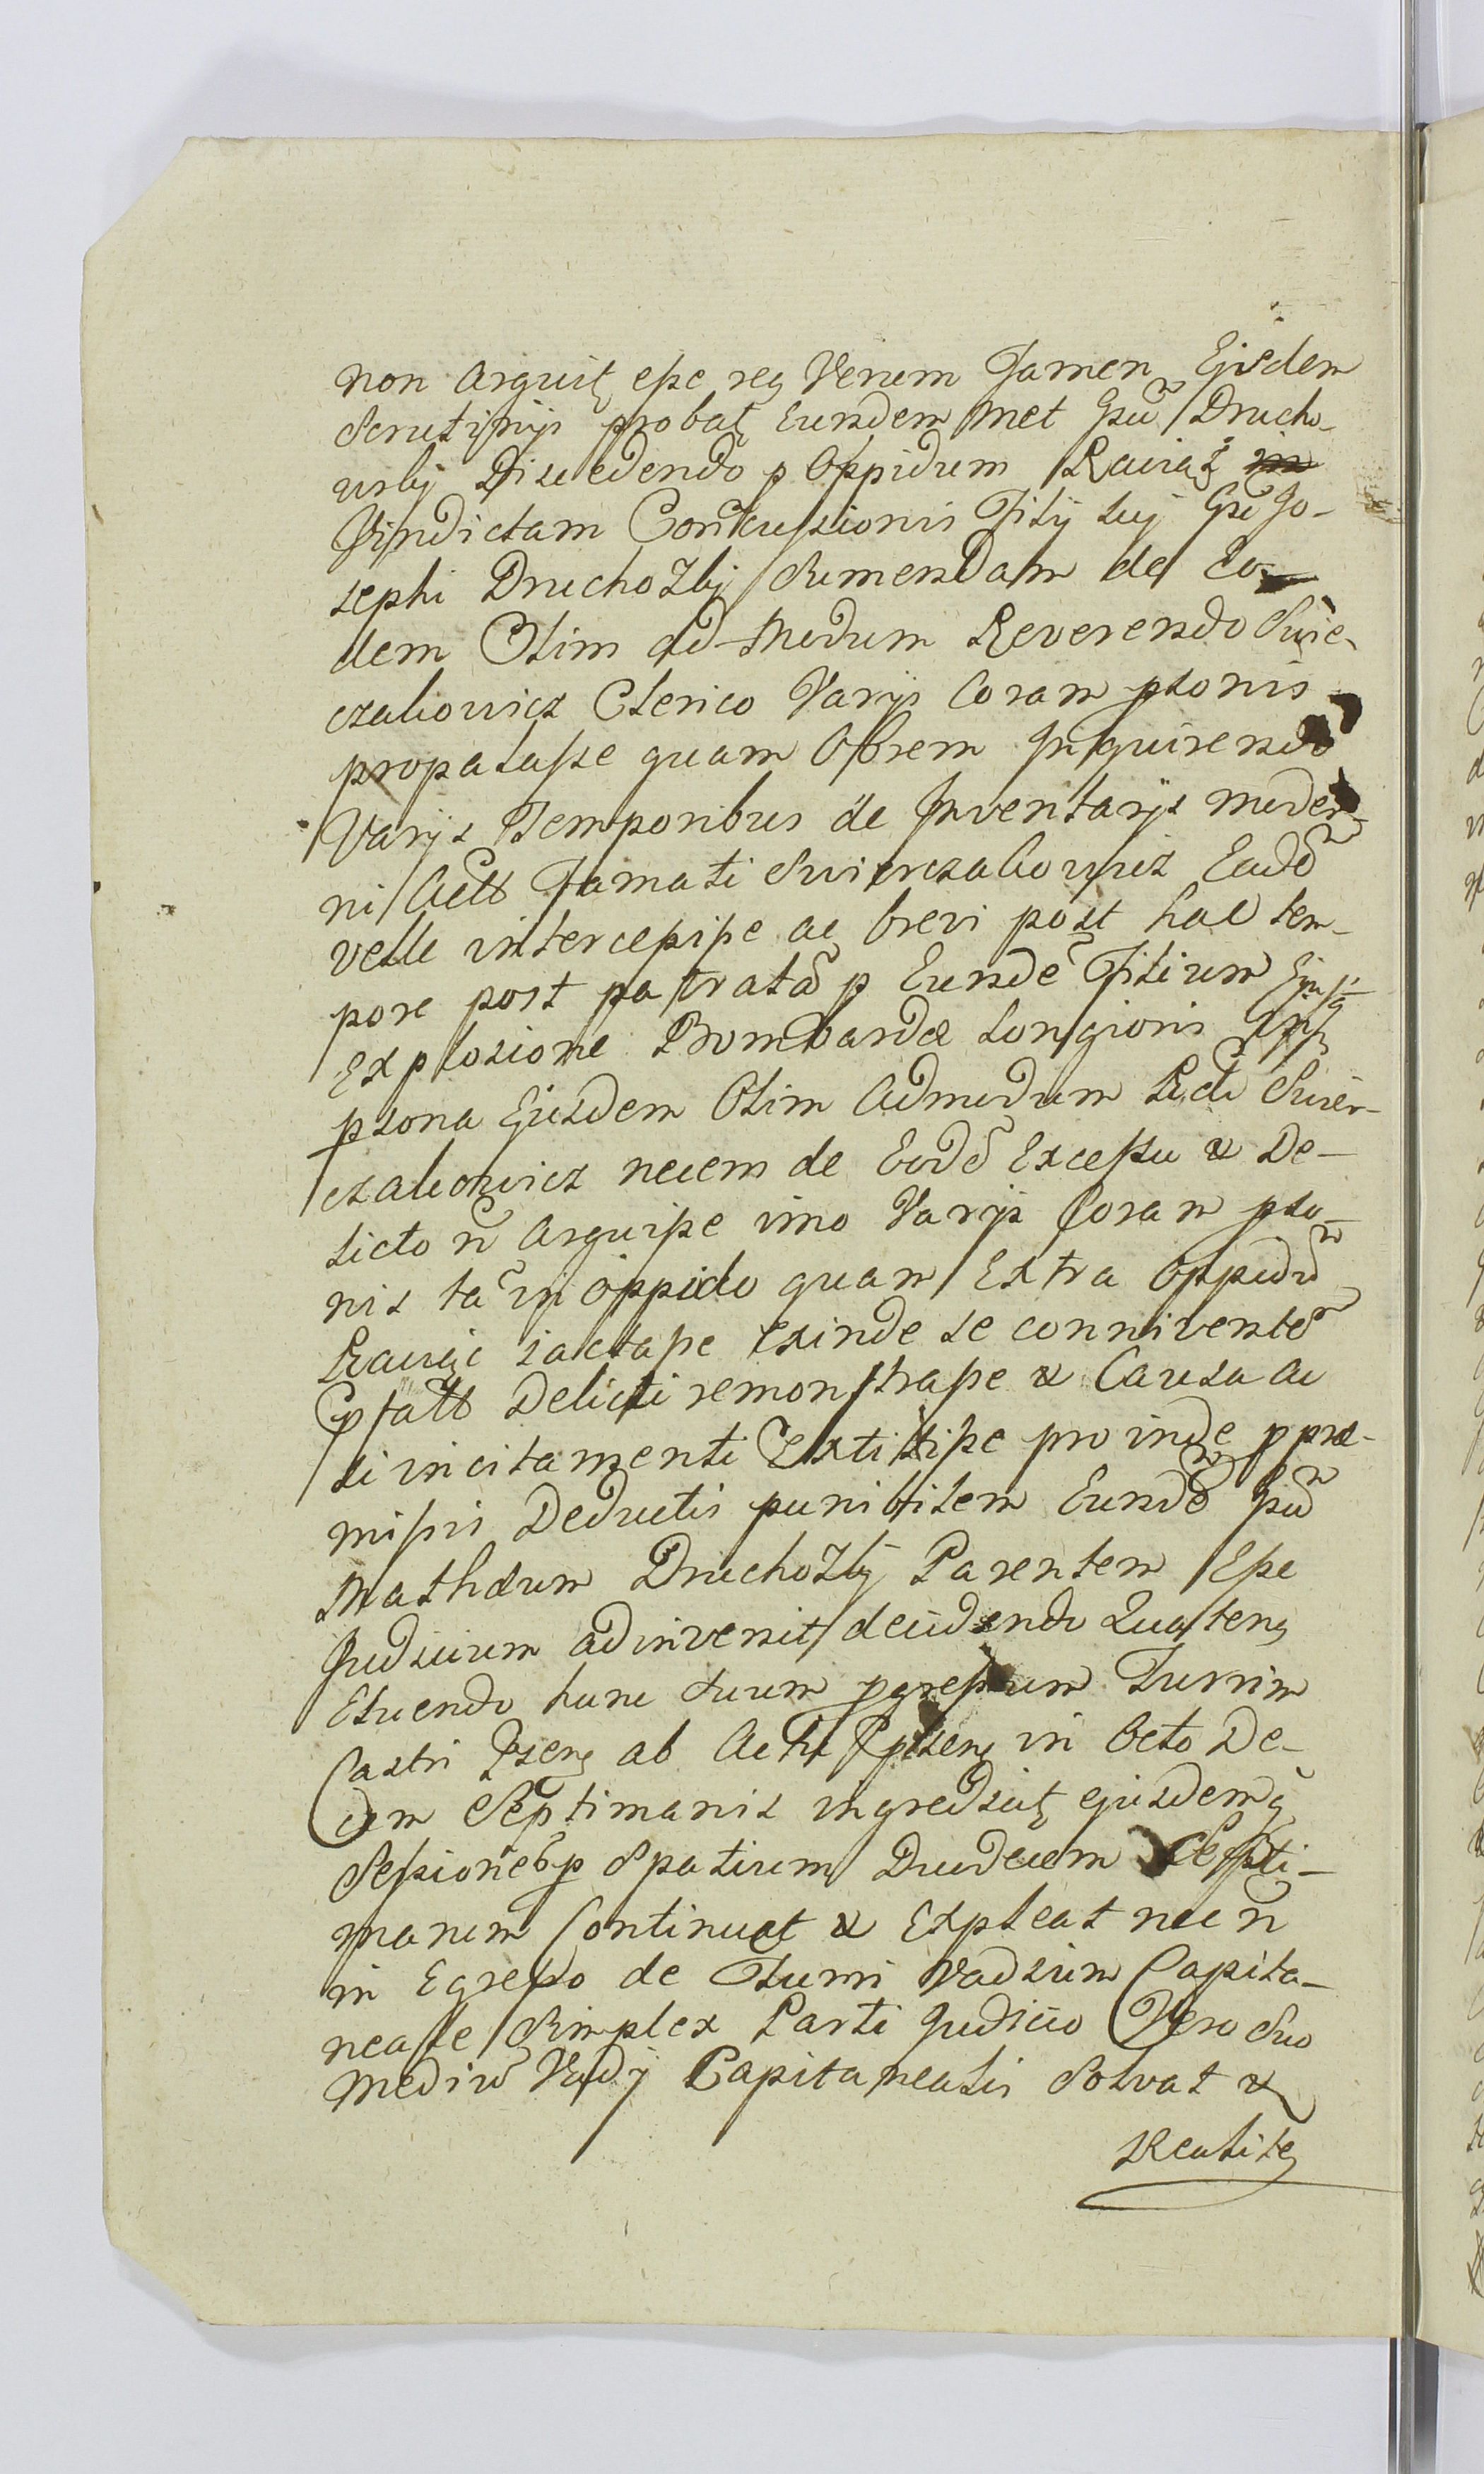 non arguit esse reg Verum Tamen Ejisdem
Scrutinijs probat Eundem met Gsũ Drucho-
wsky Discedendo p Oppidum Rawicz
Vindictam Concussionis Filij sui Gsi Jo-
sephi Druchozby Sumendam de Eo-
dem Olim ad-Modum Reverendo Swie-
czakowicz Clerico Varijs Coram psonis
propalasse quam Obrem Inquirendo
Varijs Temporibus de Inventarijs moder-
ni Actt Famati Swierczakowicz Eadẽ
velle intercepisse ac brevi post hac tem-
pore post patratã p Eundẽ Filium Ejusq̃
Explosione Bombardæ Longioris
psona Ejusdem Olim Admodum Rdi Swier-
czakowicz necem de Eodẽ Excessu & De-
licto ñ arguisse imo Varijs Coram pso-
nis tã in oppido quam Extra Oppidũ
Rawicz iactasse exinde se conniventẽ
Delicti remonstrasse & Causa ac
si incitamenti Extitisse proinde p præ-
missis Deductis punibilem Eundẽ Gsũ
Mathæum Druchozby Parentem Esse
Judicium adinvenit decidendo Quateng
Eluendo hunc suum pgressum Turrim
Castri Pseng ab Actu Pptseng in Octo De-
cem Septimanis ingrediat ejusdemq̃
Sessioneb p Spatium Duodecem Septi-
manum Continuet & Expleat nec ñ
in Egresso de Turri Vadium Capita-
neale Simplex Parti Judicio Vero Suo
Mediũ Vadij Capitanealis Solvat &
Realiter